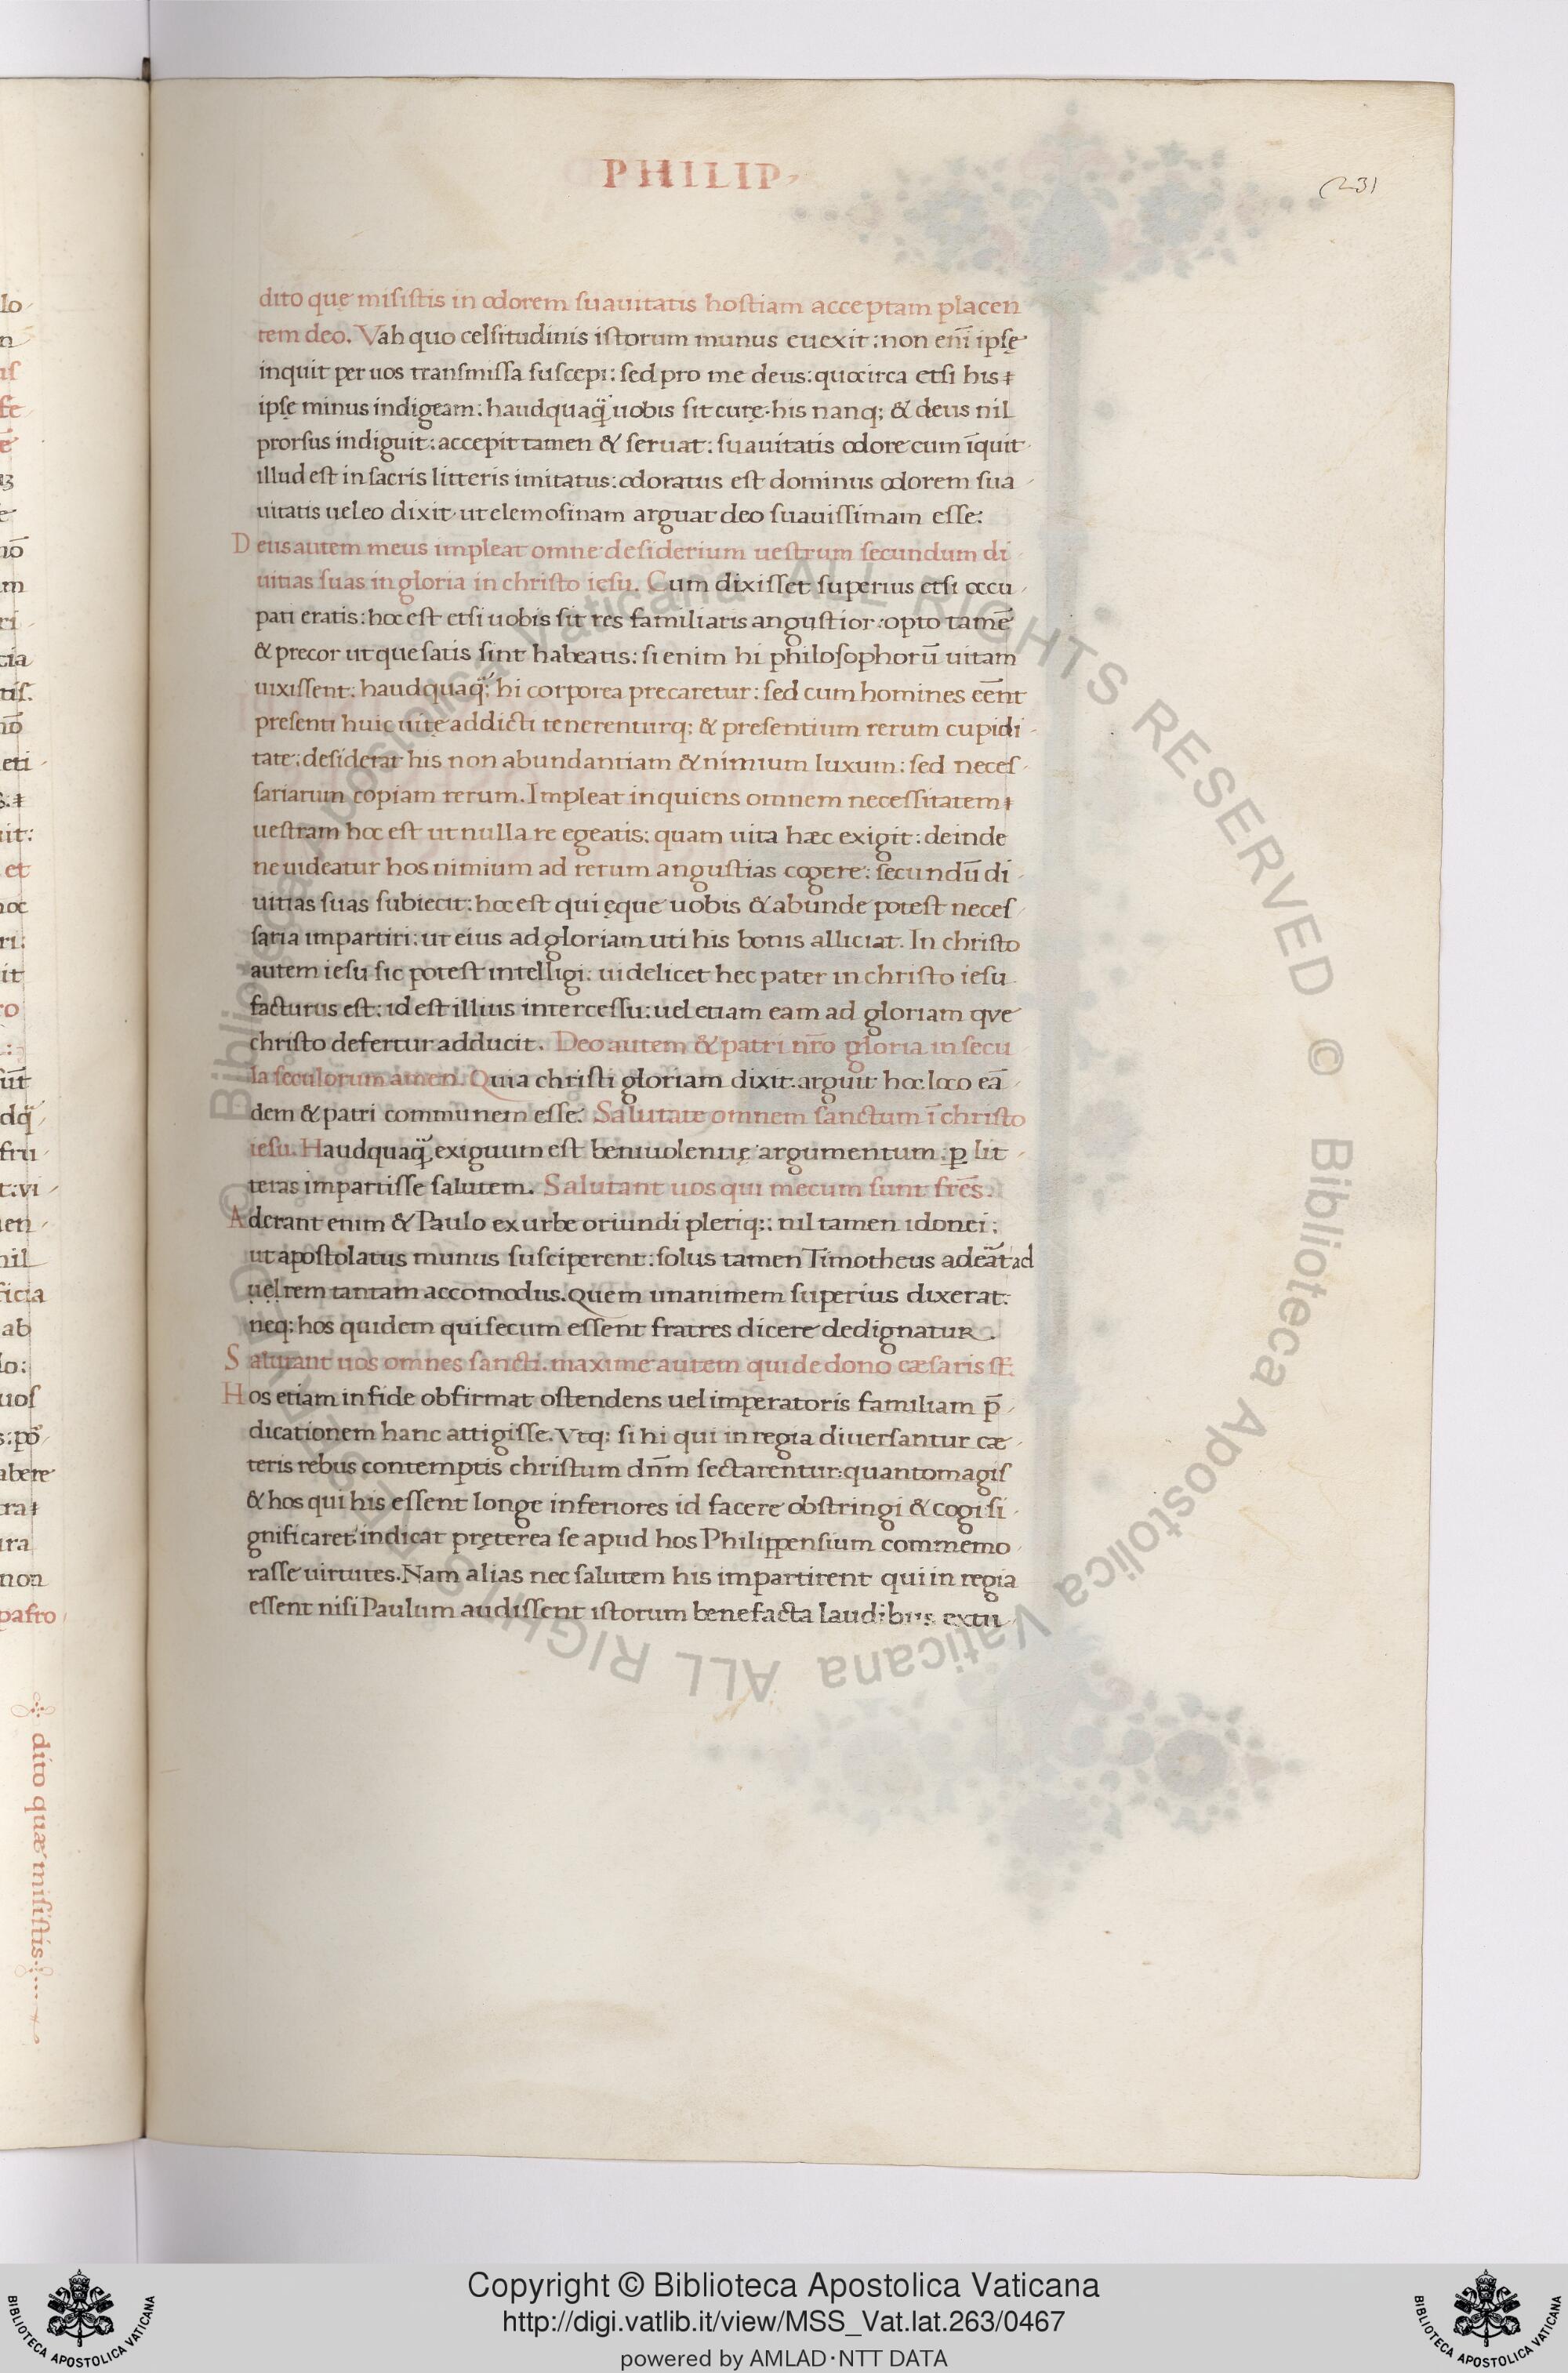 PHILIP
231
dito quę misistis in odorem suauitatis hostiam acceptam placen
tem deo. Vah quo celsitudinis istorum munus euexit: non eni̅ ipsę
inquit per uos transmissa suscepi: sed pro me deus: quocirca etsi his
ipsę minus indigeam: haudquaq̈ uobis sit curę. his nanq; & deus nil
prorsus indiguit: accepit tamen & seruat: suauitatis odore cum i̅quit
illud est in sacris litteris imitatus: odoratus est dominus odorem sua
uitatis uel eo dixit. ut elemosinam arguat deo suauissimam esse:
Deus autem meus impleat omne desiderium uestrum secundum di
uitias suas in gloria in christo iesu. Cum dixisset superius etsi occu
pati eratis: hoc est etsi uobis sit res familiaris angustior: opto tame̅
& precor ut que satis sint habeatis: si enim hi philosophoru̅ uitam
uixissent: haudquaq̈; hi corporea precaretur: sed cum homines ee̅nt
presenti huic uitę addicti tenerenturq; & presentium rerum cupidi
tate: desiderat his non abundantiam & nimium luxum: sed neces
sariarum copiam rerum. Impleat inquiens omnem necessitatem
uestram hoc est ut nulla re egeatis: quam uita hæc exigit: deinde
ne uideatur hos nimium ad rerum angustias cogere: secundu̅ di
uitias suas subiecit: hoc est qui ęque uobis & abunde potest neces
saria impartiri: ut eius ad gloriam uti his bonis alliciat. In christo
autem iesu sic potest intelligi: uidelicet hec pater in christo iesu
facturus est: id est illius intercessu: uel etiam eam ad gloriam qve
christo defertur adducit. Deo autem & patri nr̅o gloria in secu
la seculorum amen. Quia christi gloriam dixit. arguit hoc loco ea̅
dem & patri communem esse. Salutate omnem sanctum i̅ christo
iesu. Haudquaq̈ exiguum est beniuolentię argumentum: ꝑ lit
teras impartisse salutem. Salutant uos qui mecum sunt fre̅s.
Aderant enim & Paulo ex urbe oriundi pleriq;: nil tamen idonei:
ut apostolatus munus susciperent: solus tamen Timotheus adea̅t ad
uel rem tantam accomodus. Quem unanimem superius dixerat:
neq; hos quidem qui secum essent fratres dicere dedignatur.
Salutant uos omnes sancti. maxime autem qui de dono cæsaris st̅.
Hos etiam in fide obfirmat ostendens uel imperatoris familiam p̅
dicationem hanc attigisse. Vtq; si hi qui in regia diuersantur cæ
teris rebus contemptis christum dn̅m sectarentur: quantomagis
& hos qui his essent longe inferiores id facere obstringi & cogi si
gnificaret: indicat pręterea se apud hos Philippensium commemo
rasse uirtutes. Nam alias nec salutem his impartirent qui in regia
essent nisi Paulum audissent istorum benefacta laudibus extu
dito quæ misistis
Copyright © Biblioteca Apostolica Vaticana
http://digi.vatlib.it/view/MSS_Vat.lat.263/0467
powered by AMLAD·NTT DATA
BIBLIOTECA APOSTOLICA VATICANA
BIBLIOTECA APOSTOLICA VATICANA
© Biblioteca Apostolica Vaticana ALL RIGHTS RESERVED © Biblioteca Apostolica Vaticana ALL RIGHTS RESERVED